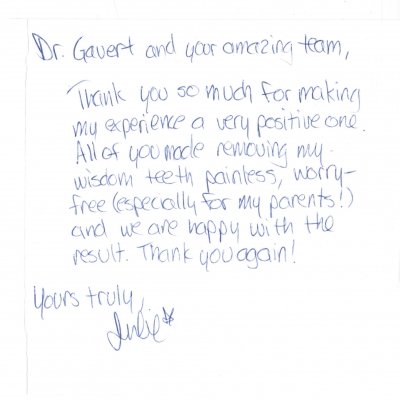 Dr. Gauert and your amazing team,
Thank you so much for making
my experience a very positive one.
All of you made removing my
wisdom teeth painless, worry-
free (especially for my parents!)
and we are happy with the
result. Thank you again!
Yours truly,
Julie